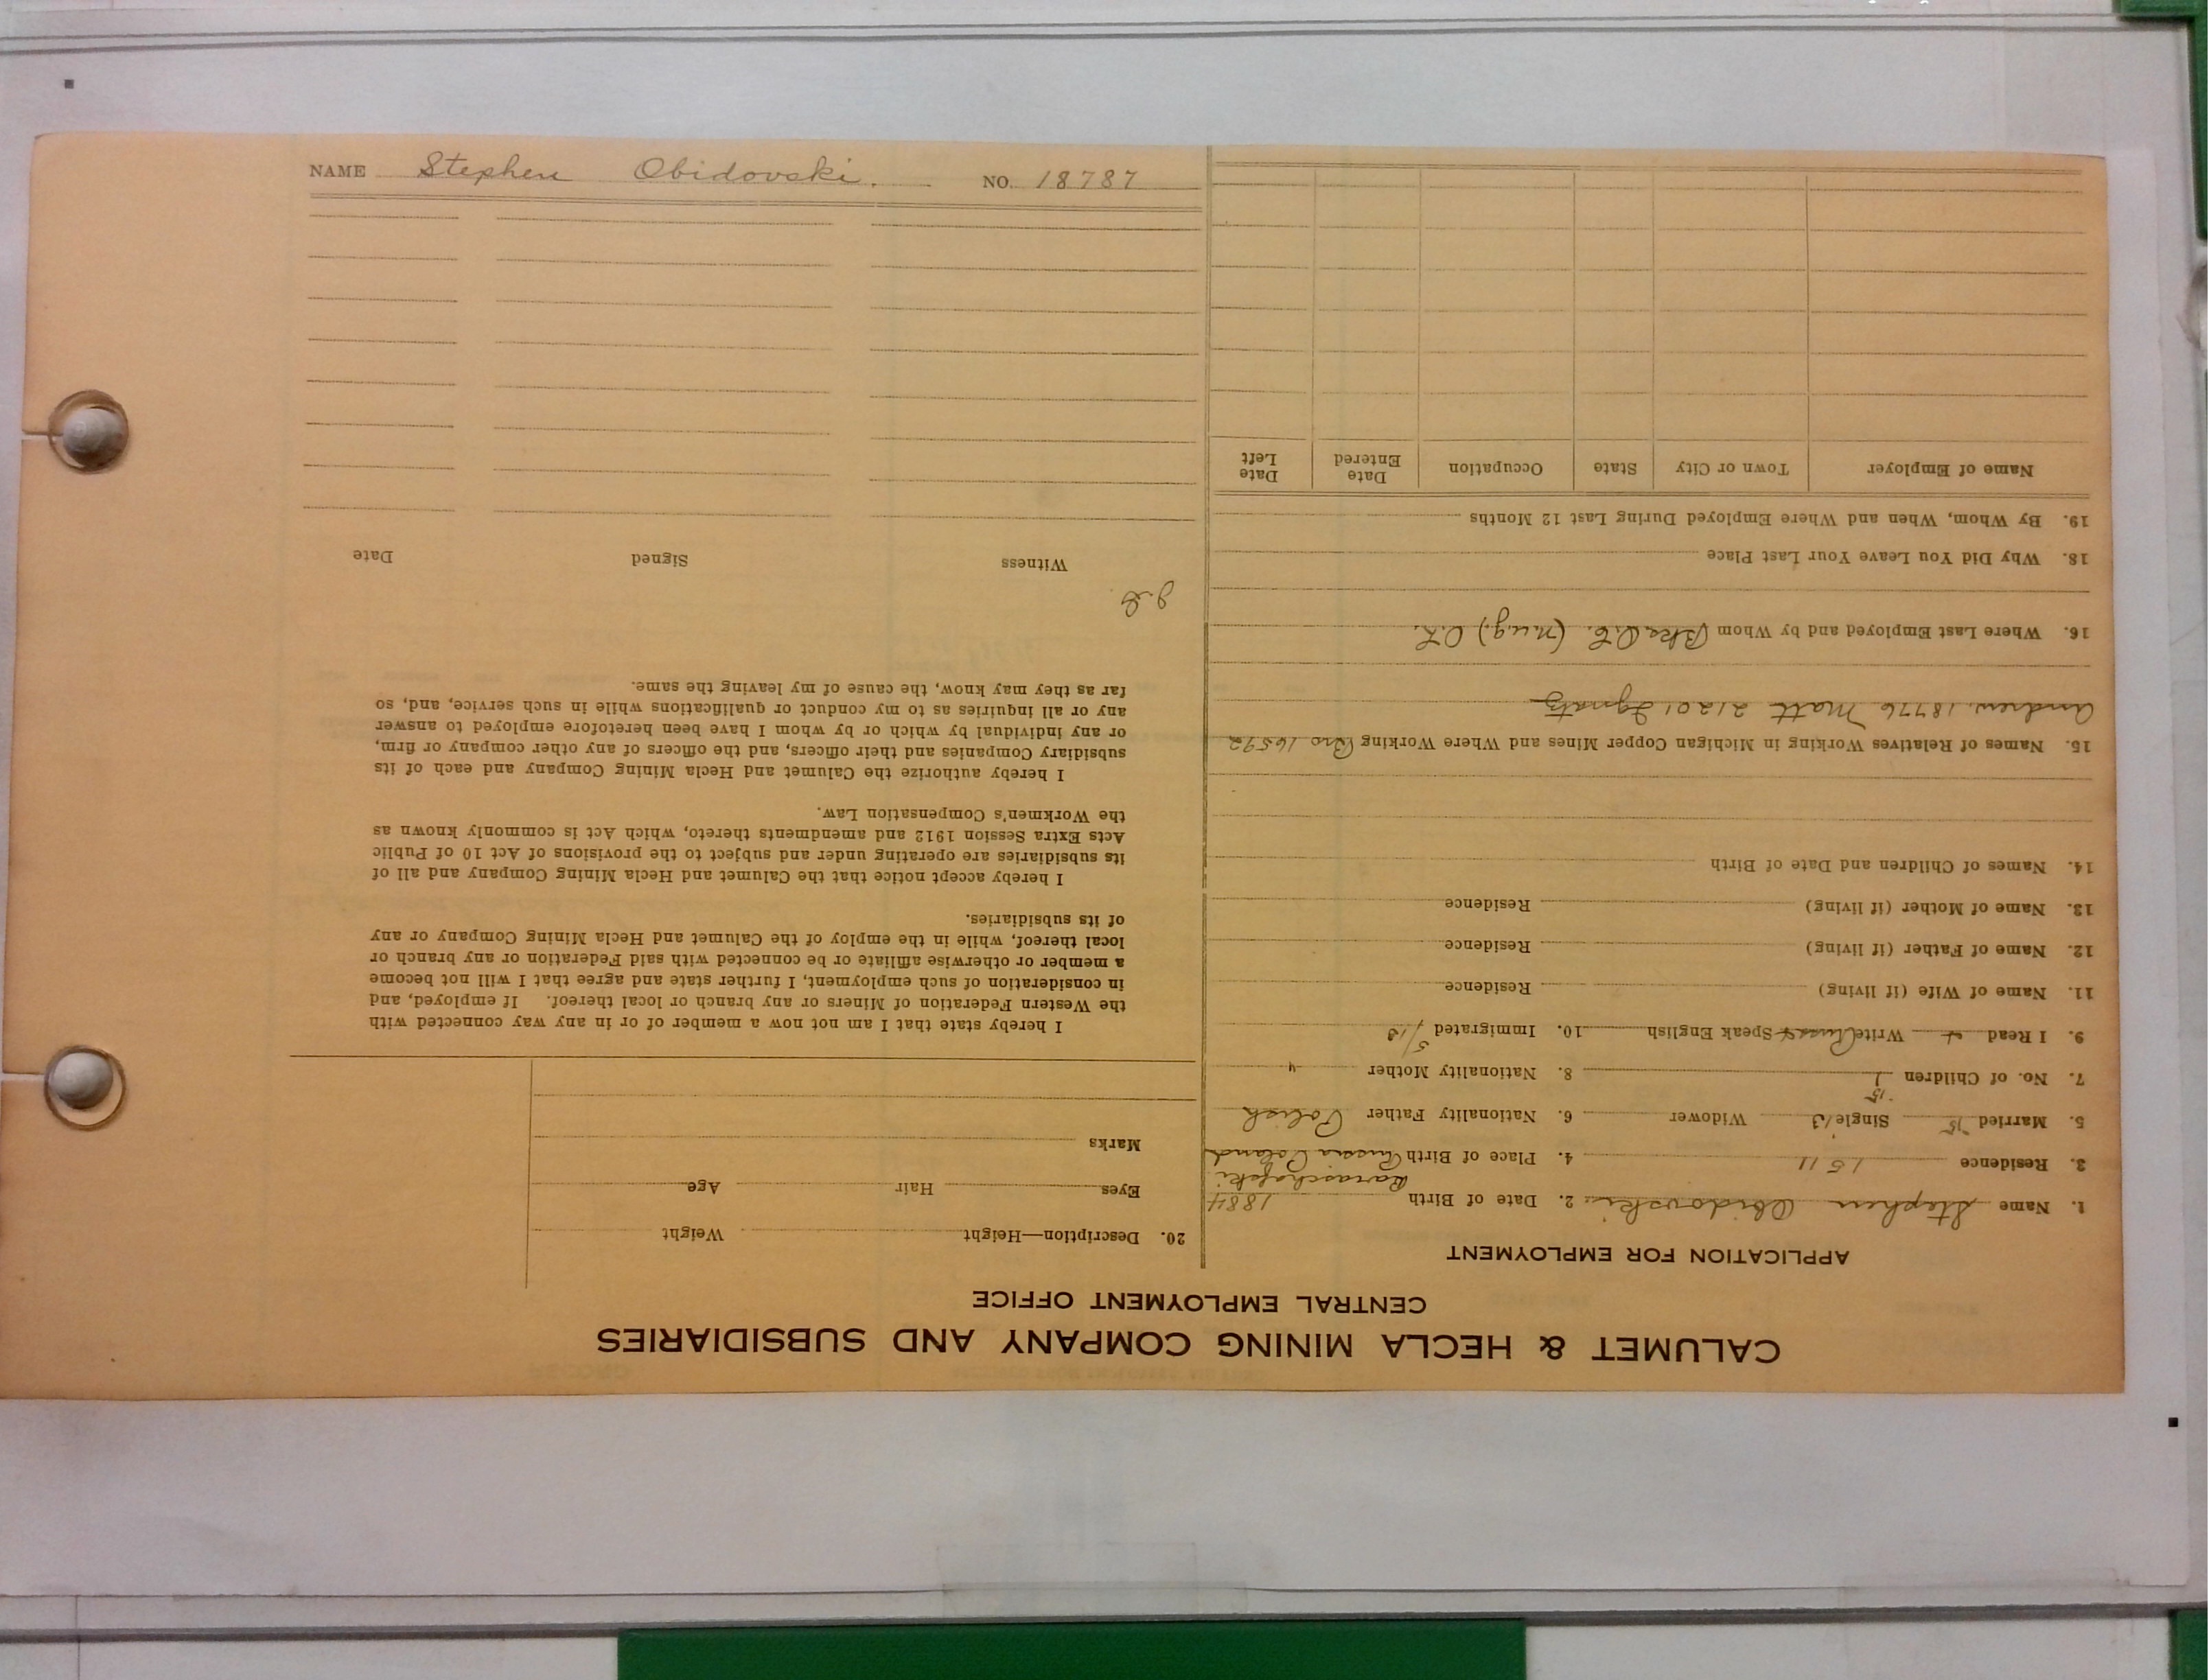 NAME Stephen Obidovski. NO. 18787
CALUMET & HECLA MINING COMPANY AND SUBSIDIARIES
CENTRAL EMPLOYMENT OFFICE
APPLICATION FOR EMPLOYMENT
1. Name Stephen Obidovski 2. Date of Birth 1884
3. Residence 1511 4. Place of Birth Russia Poland
5. Married '15 Single '13 Widower 6. Nationality Father Polish
'15
7. No. of Children 1 8. Nationality Mother "
9. I Read + Write Russ + Speak English 10. Immigrated 5/13
11. Name of Wife (if living) Residence
12. Name of Father (if living) Residence
13. Name of Mother (if living) Residence
14. Names of Children and Date of Birth
15. Names of Relatives Working in Michigan Copper Mines and Where Working Bro 16592
Andrew. 18776 Matt 21201 Ignatz
16. Where Last Employed and by Whom (n.u.g.)
18. Why Did You Leave Your Last Place
19. By Whom, When and Where Employed During Last 12 Months
Name of Employer Town or City State Occupation Date Entered Date Left
20. Description—Height Weight
Eyes Hair Age
Marks
I hereby state that I am not now a member of or in any way connected with
the Western Federation of Miners or any branch or local thereof. If employed, and
in consideration of such employment, I further state and agree that I will not become
a member or otherwise affiliate or be connected with said Federation or any branch or
local thereof, while in the employ of the Calumet and Hecla Mining Company or any
of its subsidiaries.
I hereby accept notice that the Calumet and Hecla Mining Company and all of
its subsidiaries are operating under and subject to the provisions of Act 10 of Public
Acts Extra Session 1912 and amendments thereto, which Act is commonly known as
the Workmen's Compensation Law.
I hereby authorize the Calumet and Hecla Mining Company and each of its
subsidiary Companies and their officers, and the officers of any other company or firm,
or any individual by which or by whom I have been heretofore employed to answer
any or all inquiries as to my conduct or qualifications while in such service, and, so
far as they may know, the cause of my leaving the same.
Witness Signed Date